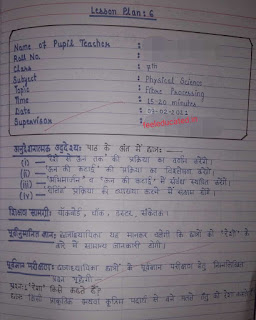 Lesson Plan: 6
Name of Pupil Teacher :
Roll No. :
Class :
Subject : Physical Science
Topic : Fibre Processing
Time : 15-20 minutes
Date : 03-02-2022
Supervisor :
अनुदेशनात्मक उद्देश्य: पाठ के अंत में छात्र:-
(i) - "रेशों से ऊन तक" की प्रक्रिया का वर्णन करेंगे।
(ii) - "ऊन की कटाई" की प्रक्रिया का विश्लेषण करेंगे।
(iii) - व "ऊन की कटाई" में संबंध स्थापित करेंगे।
(iv) - प्रक्रिया की व्याख्या करने में सक्षम होंगे।
शिक्षण सामग्री: चॉकबोर्ड, चॉक, डस्टर, संकेतक।
पूर्वानुमानित ज्ञान: छात्राध्यापिका यह मानकर चलेगी कि छात्रों को "रेशों" के
बारे में सामान्य जानकारी होगी।
पूर्वज्ञान परीक्षण: छात्राध्यापिका छात्रों के पूर्वज्ञान परीक्षण हेतु निम्नलिखित
प्रश्न पूछेगी:-
प्रश्न: "रेशा" किसे कहते हैं?